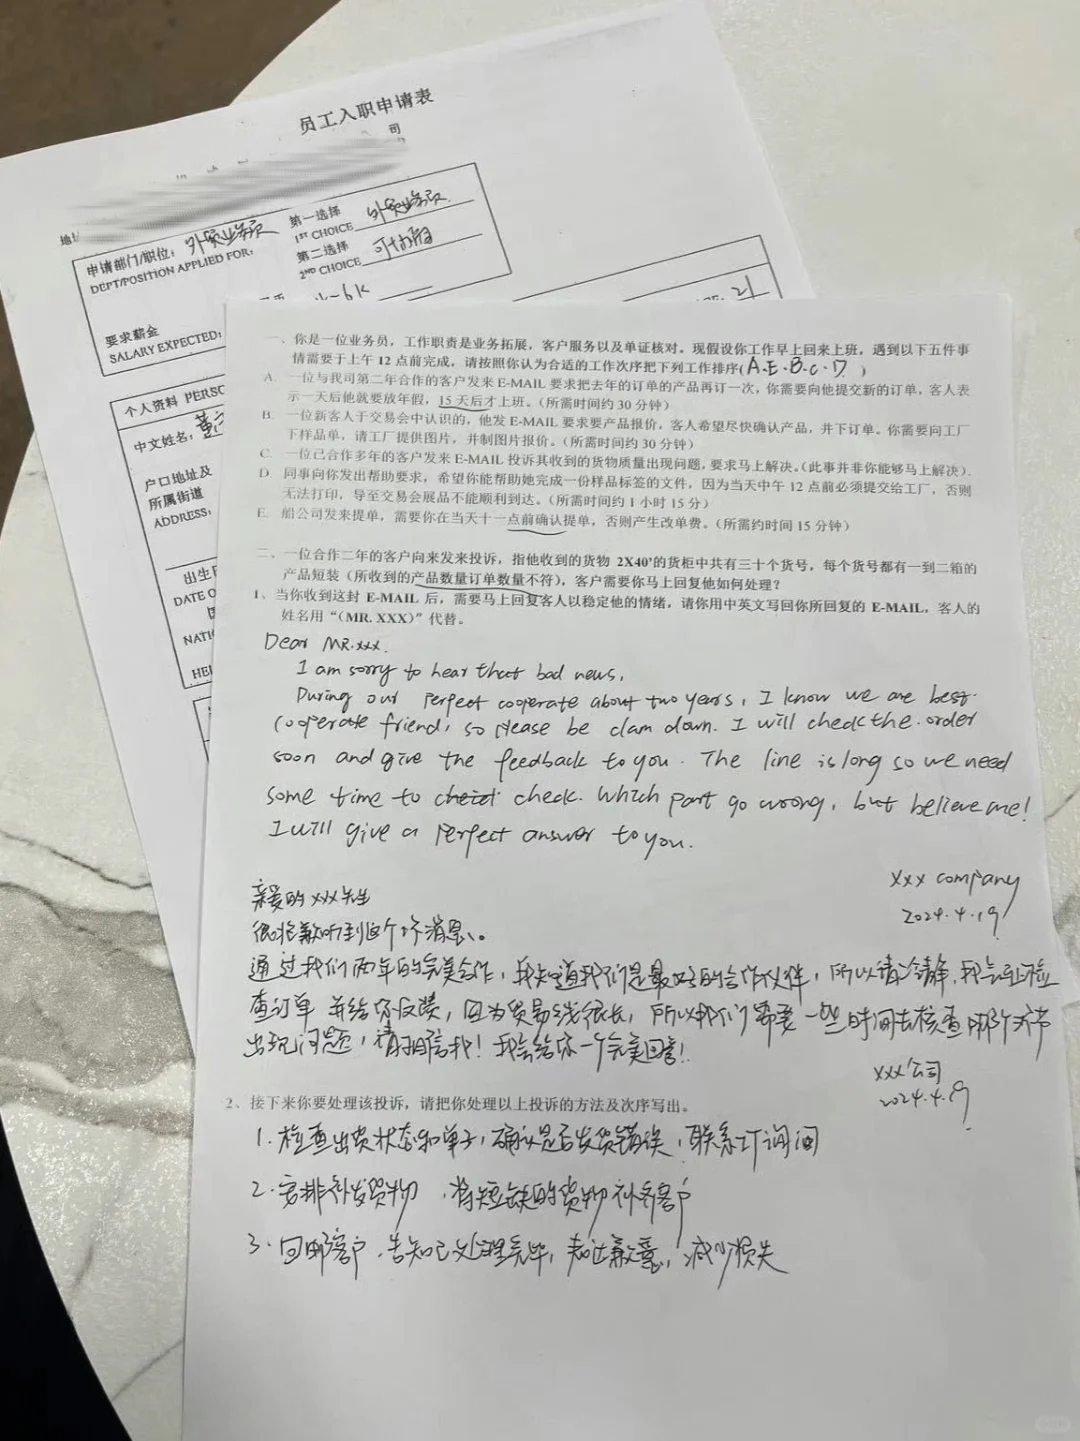 员工入职申请表
司
申请部门/职位: 外贸业务员
DEPT/POSITION APPLIED FOR:
第一选择
1ST CHOICE 外贸业务员
第二选择
2ND CHOICE
要求薪金
SALARY EXPECTED:
个人资料 PERSO
中文姓名:
户口地址及
所属街道
ADDRESS:
出生
DATE O
NATI
一、你是一位业务员，工作职责是业务拓展，客户服务以及单证核对。现假设你工作早上回来上班，遇到以下五件事
情需要于上午 12 点前完成，请按照你认为合适的工作次序把下列工作排序( A.E.B.C.D. )
A. 一位与我司第二年合作的客户发来 E-MAIL 要求把去年的订单的产品再订一次，你需要向他提交新的订单，客人表
示一天后他就要放年假，15 天后才上班。（所需时间约 30 分钟）
B. 一位新客人于交易会中认识的，他发 E-MAIL 要求要产品报价，客人希望尽快确认产品，并下订单。你需要向工厂
下样品单，请工厂提供图片，并制图片报价。（所需时间约 30 分钟）
C. 一位已合作多年的客户发来 E-MAIL 投诉其收到的货物质量出现问题，要求马上解决。（此事并非你能够马上解决）.
D. 同事向你发出帮助要求，希望你能帮助她完成一份样品标签的文件，因为当天中午 12 点前必须提交给工厂，否则
无法打印，导至交易会展品不能顺利到达。（所需时间约 1 小时 15 分）
E. 船公司发来提单，需要你在当天十一点前确认提单，否则产生改单费。（所需约时间 15 分钟）
二、一位合作二年的客户向来发来投诉，指他收到的货物 2X40'的货柜中共有三十个货号，每个货号都有一到二箱的
产品短装（所收到的产品数量订单数量不符），客户需要你马上回复他如何处理？
1、当你收到这封 E-MAIL 后，需要马上回复客人以稳定他的情绪，请你用中英文写回你所回复的 E-MAIL，客人的
姓名用“（MR. XXX）”代替。
Dear MR.xxx.
I am sorry to hear that bad news.
During our perfect cooperate about two years, I know we are best
cooperate friend, so please be clam down. I will check the order
soon and give the feedback to you. The line is long so we need
some time to check. Which part go wrong, but believe me!
I will give a perfect answer to you.
xxx company
2024.4.19
亲爱的xxx先生
很抱歉听到这个坏消息。
通过我们两年的完美合作，我知道我们是最好的合作伙伴，所以请冷静，我会马上检
查订单 并给你反馈，因为贸易线很长，所以我们需要一些时间去核查哪个环节
出现问题，请相信我！我会给你一个完美回答！
xxx公司
2024.4.19
2、接下来你要处理该投诉，请把你处理以上投诉的方法及次序写出。
1. 检查出货状态和单子，确认是否发货错误，联系工厂询问
2. 安排补发货物，将短缺的货物补齐客户
3. 回邮客户，告知已处理完毕，表达歉意，减少损失